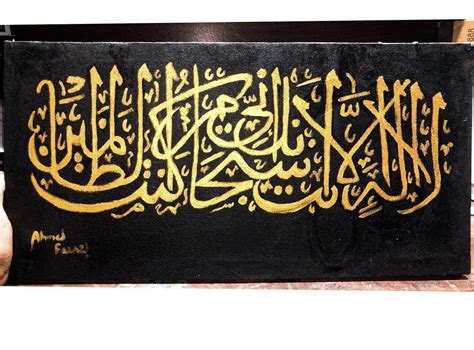 لا إله إلا أنت سبحانك إني كنت من الظالمين
Ahmed